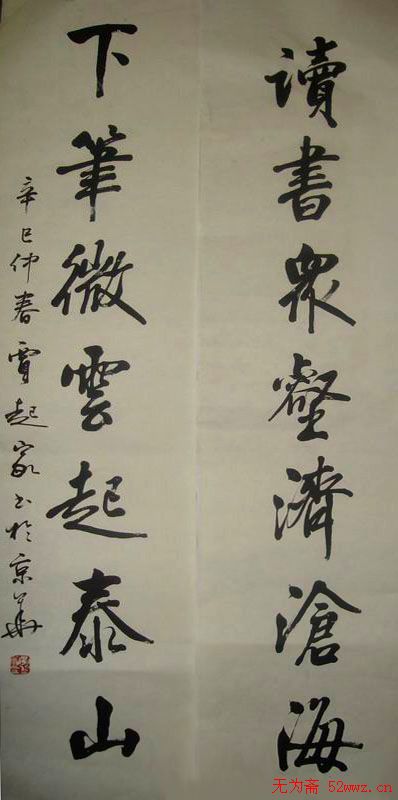 讀書眾壑濟滄海
下筆微雲起泰山
辛巳仲春賈起家书於京華
无为斋 52wwz.cn